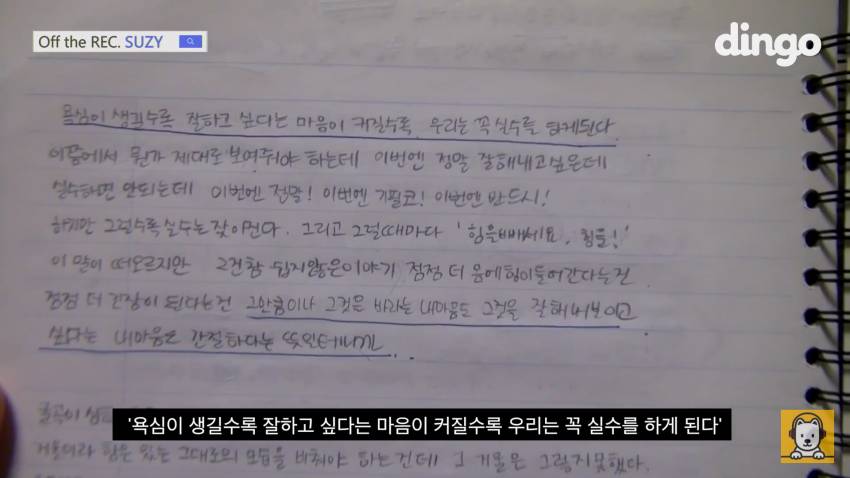 Off the REC. SUZY
dingo
욕심이 생길수록 잘하고 싶다는 마음이 커질수록 우리는 꼭 실수를 하게된다
이쯤에서 뭔가 제대로 보여줘야 하는데 이번엔 정말 잘해내고싶은데
실수하면 안되는데 이번엔 정말! 이번엔 기필코! 이번엔 반드시!
하지만 그럴수록 실수는 잦아진다. 그리고 그럴때마다 '힘을빼세요, 힘을!'
이 말이 떠오르지만 그건참 쉽지않은이야기 점점 더 몸에힘이들어간다는건
점점 더 긴장이 된다는건 그만큼이나 그것을 바라는 내마음도 그것을 잘해내보이고
싶다는 내마음도 간절하다는 뜻일테니까..
거울이라 함은 있는 그대로의 모습을 비춰야 하는건데 그 거울은 그렇지못했다.
'욕심이 생길수록 잘하고 싶다는 마음이 커질수록 우리는 꼭 실수를 하게 된다'